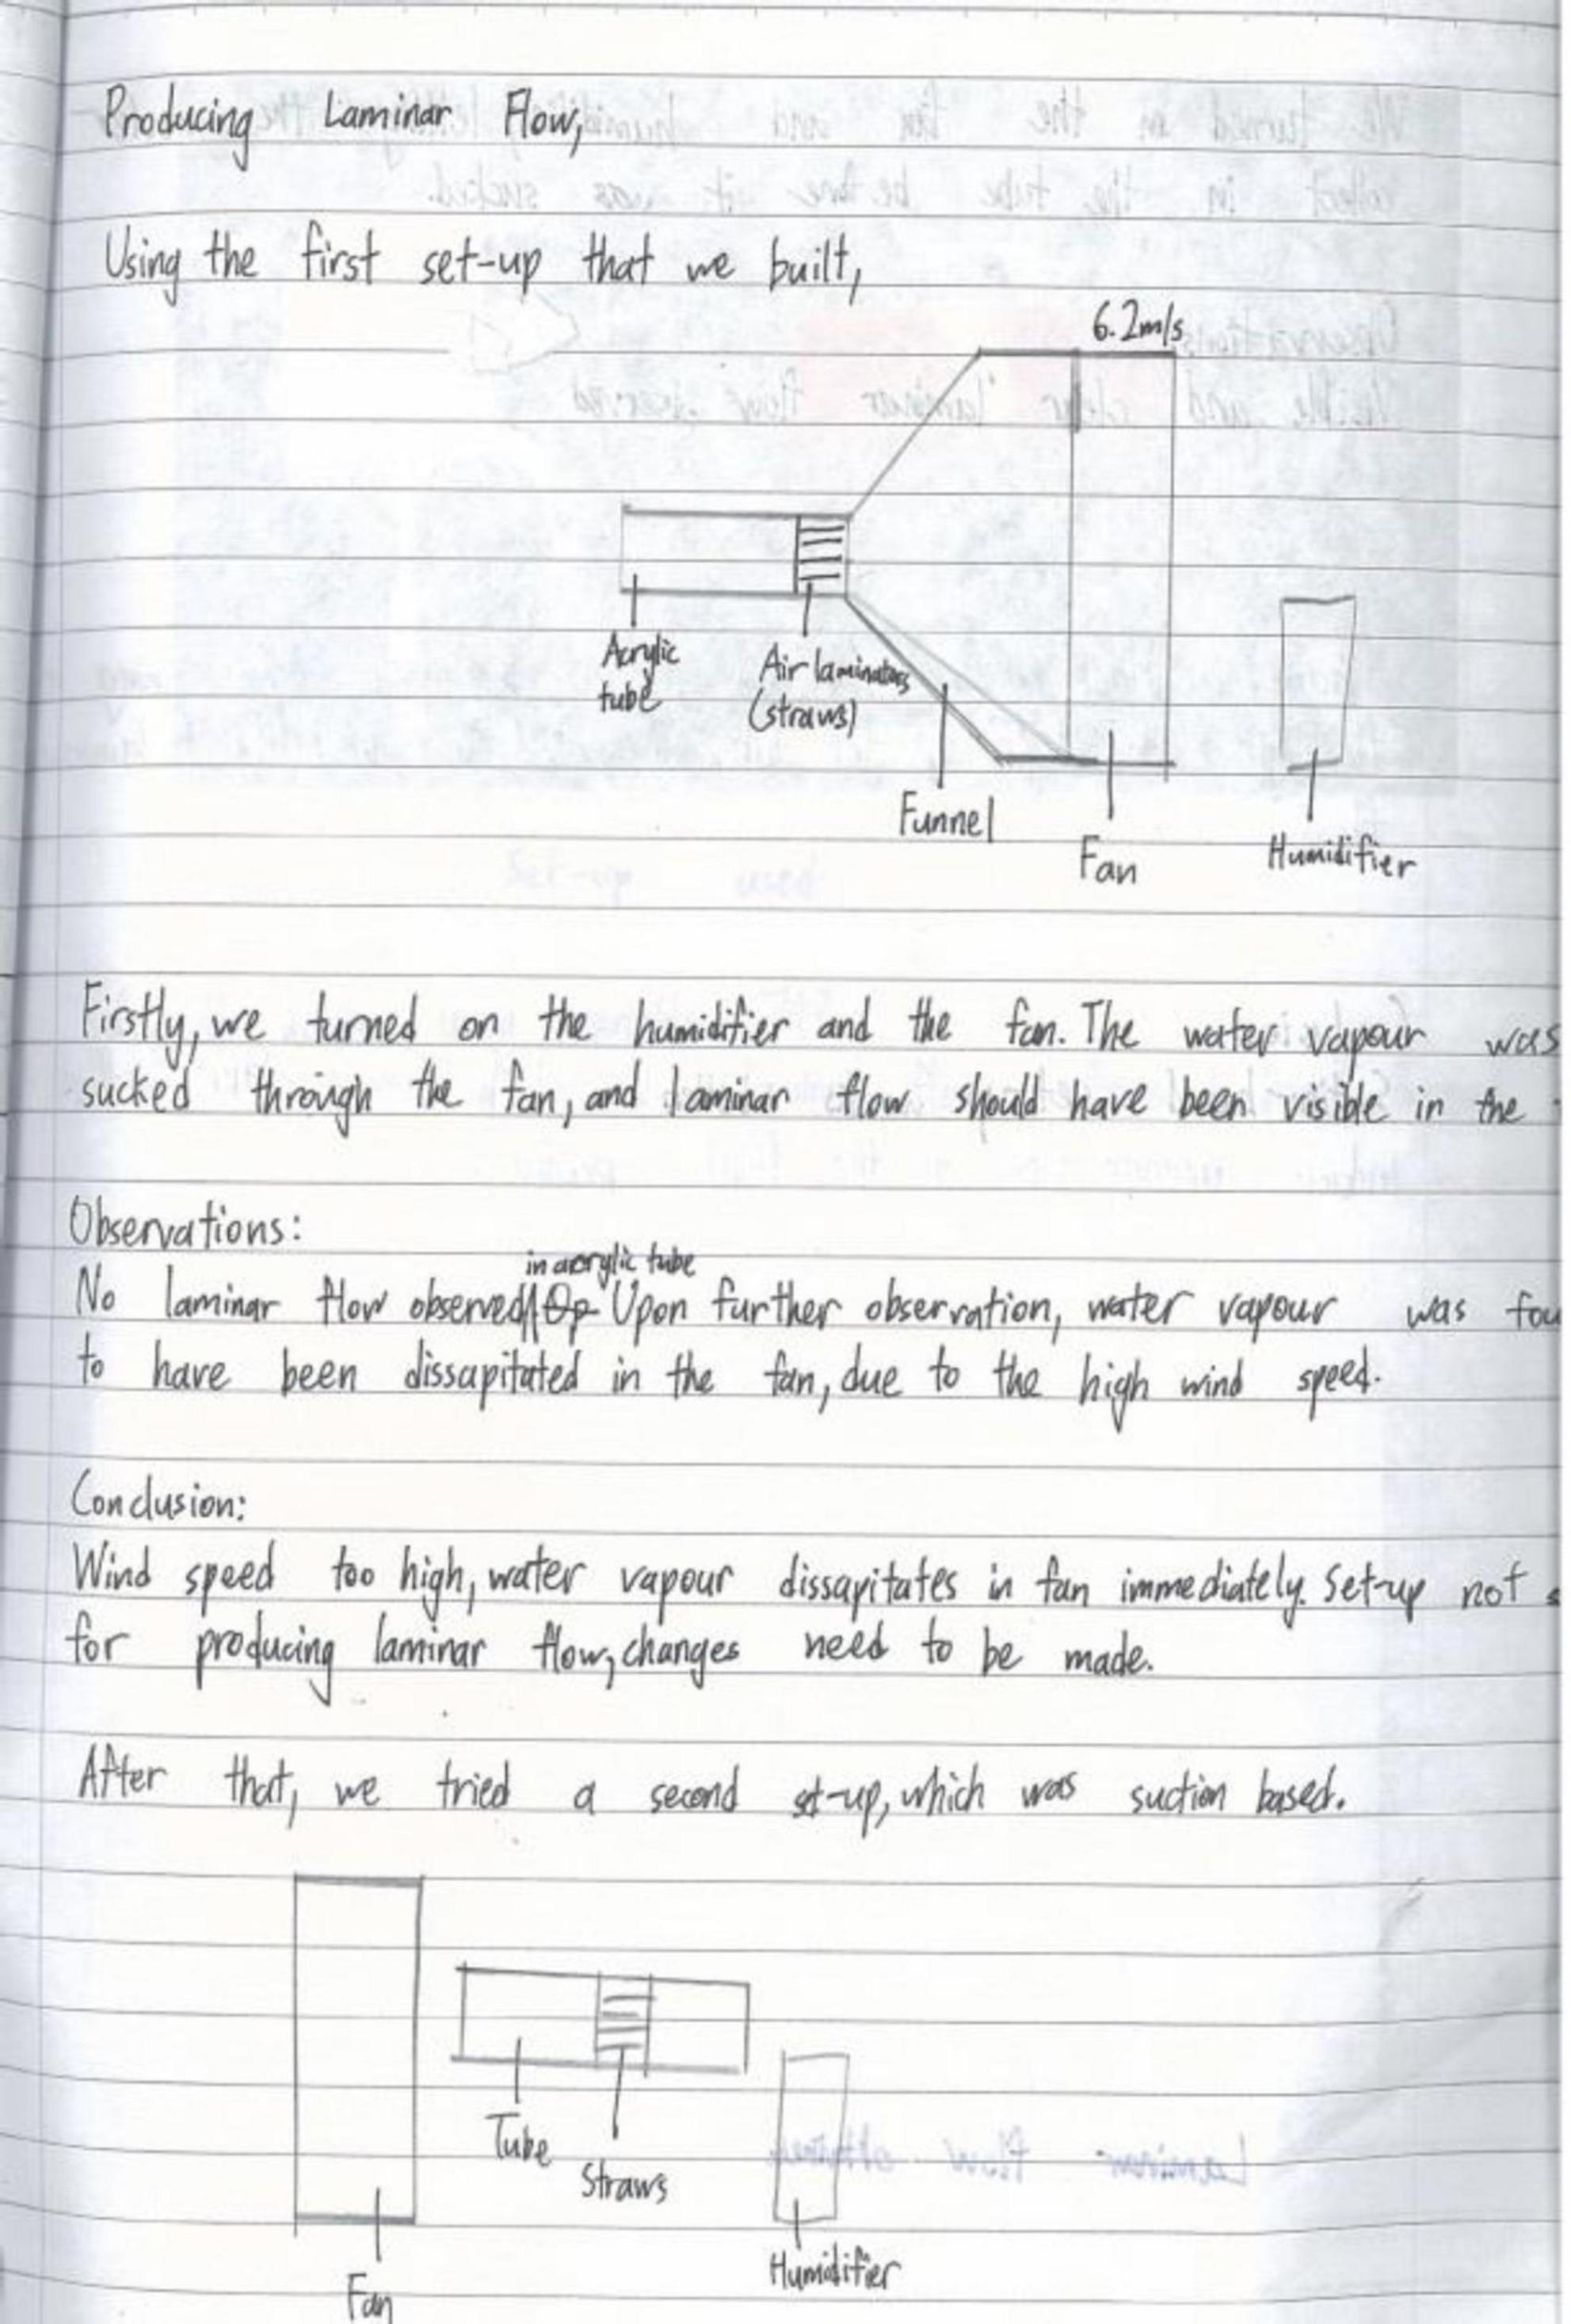 Producing Laminar Flow,
Using the first set-up that we built,
6.2m/s
Acrylic
tube
Air laminators
(straws)
Funnel
Fan
Humidifier
Firstly, we turned on the humidifier and the fan. The water vapour was
sucked through the fan, and laminar flow should have been visible in the
Observations:
in acrylic tube
No laminar flow observed Op Upon further observation, water vapour was fou
to have been dissapitated in the fan, due to the high wind speed.
Conclusion:
Wind speed too high, water vapour dissapitates in fan immediately. Set-up not
for producing laminar flow, changes need to be made.
After that, we tried a second set-up, which was suction based.
Tube
Straws
Humidifier
Fan